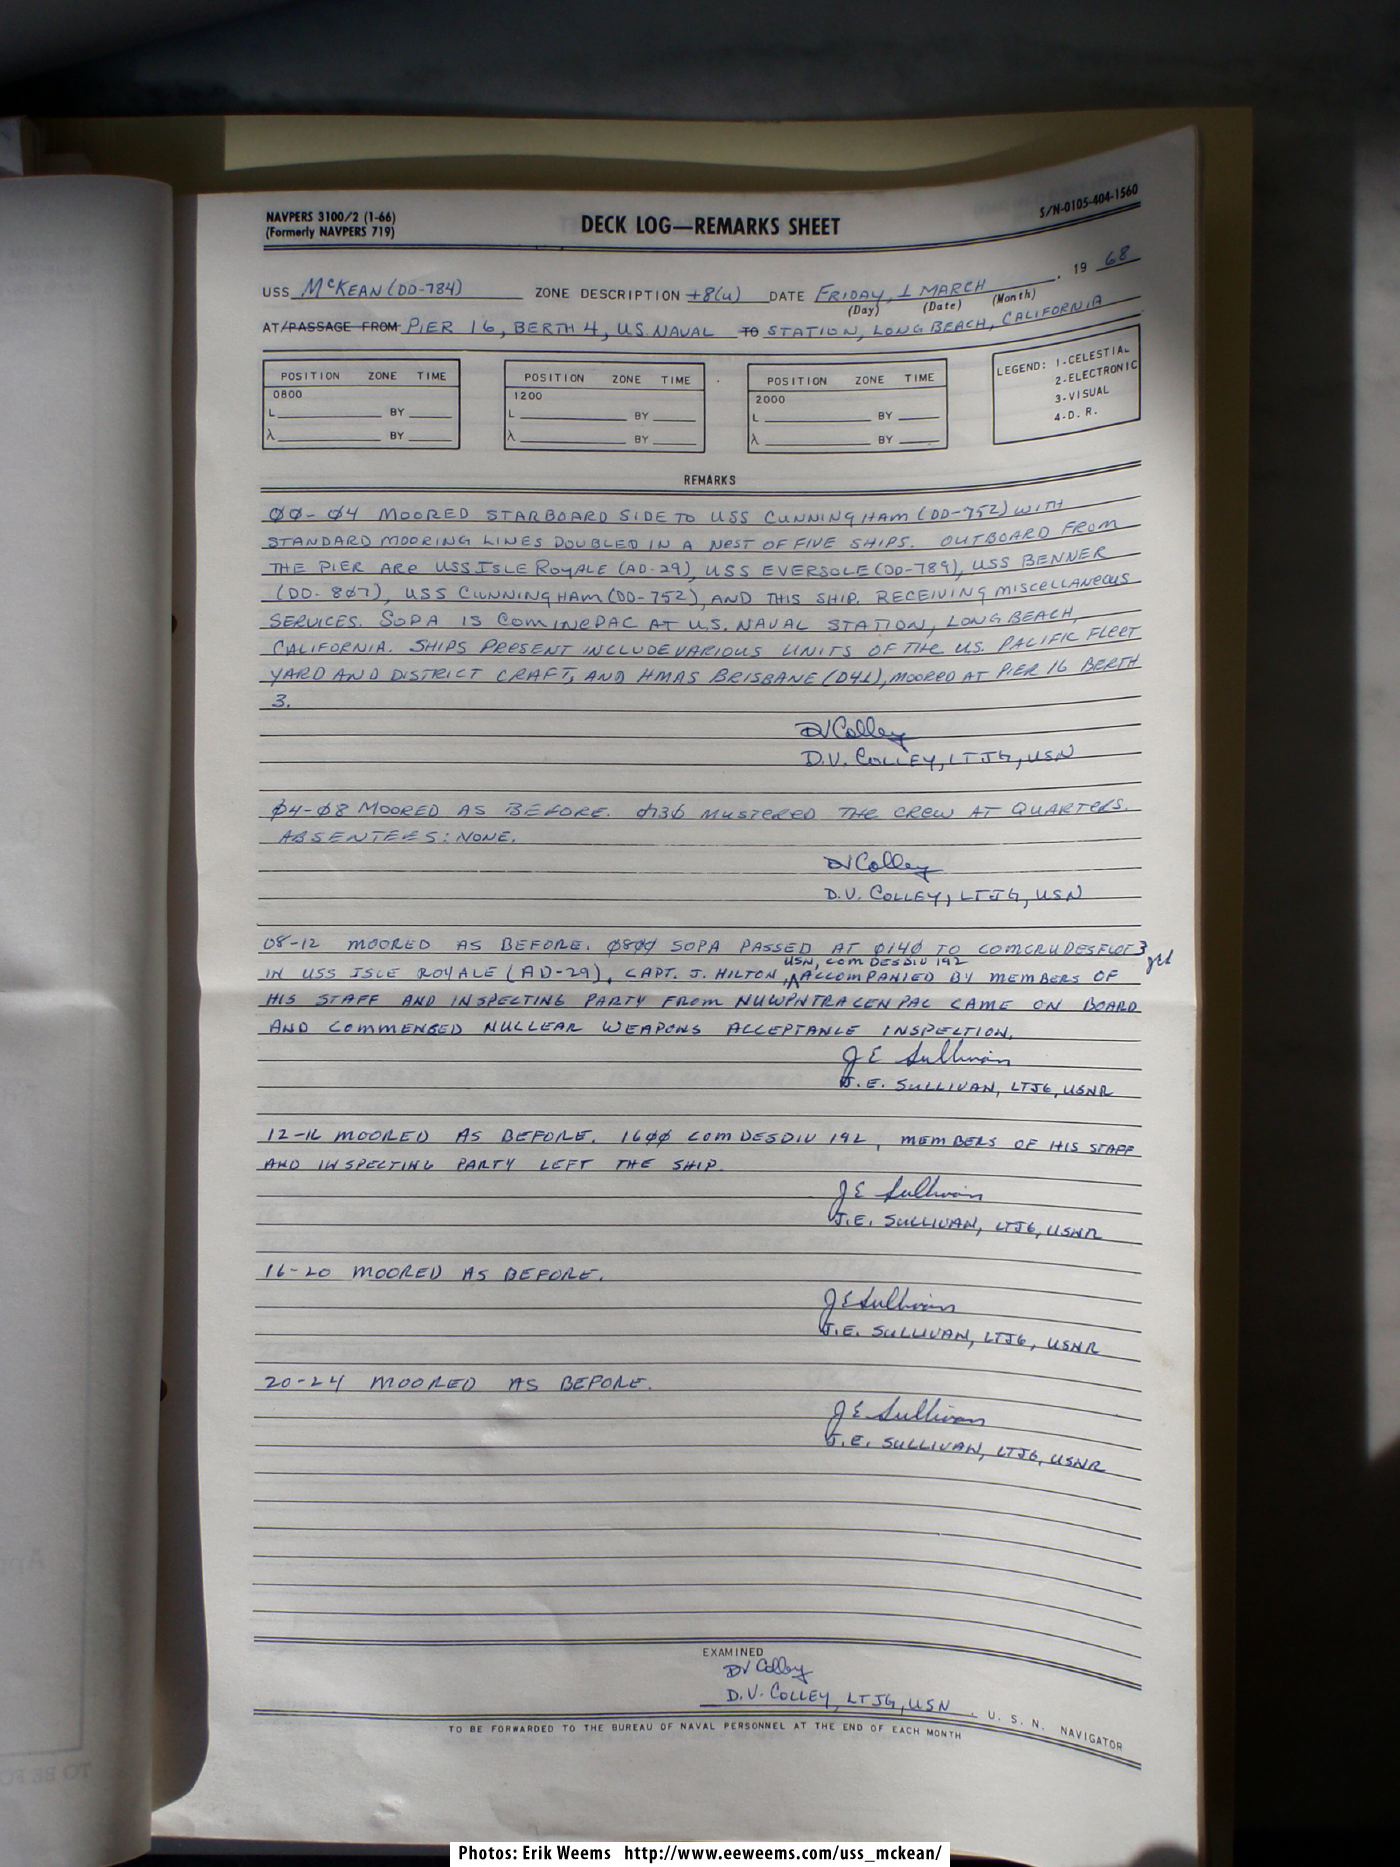 NAVPERS 3100/2 (1-66)
(Formerly NAVPERS 719)
DECK LOG—REMARKS SHEET
S/N-0105-404-1560
USS McKEAN (DD-784) ZONE DESCRIPTION +8(U) DATE FRIDAY, 1 MARCH , 19 68
(Day) (Date) (Month)
AT/PASSAGE FROM PIER 16, BERTH 4, U.S. NAVAL TO STATION, LONG BEACH, CALIFORNIA
POSITION ZONE TIME
0800
L BY
λ BY
POSITION ZONE TIME
1200
L BY
λ BY
POSITION ZONE TIME
2000
L BY
λ BY
LEGEND: 1-CELESTIAL
2-ELECTRONIC
3-VISUAL
4-D. R.
REMARKS
00-04 MOORED STARBOARD SIDE TO USS CUNNINGHAM (DD-752) WITH
STANDARD MOORING LINES DOUBLED IN A NEST OF FIVE SHIPS. OUTBOARD FROM
THE PIER ARE USS ISLE ROYALE (AD-29), USS EVERSOLE (DD-789), USS BENNER
(DD-807), USS CUNNINGHAM (DD-752), AND THIS SHIP. RECEIVING MISCELLANEOUS
SERVICES. SOPA IS COMINEPAC AT U.S. NAVAL STATION, LONG BEACH,
CALIFORNIA. SHIPS PRESENT INCLUDE VARIOUS UNITS OF THE U.S. PACIFIC FLEET
YARD AND DISTRICT CRAFT, AND HMAS BRISBANE (D41), MOORED AT PIER 16 BERTH
3.
DV Colley
D.V. COLLEY, LTJG, USN
04-08 MOORED AS BEFORE. 0730 MUSTERED THE CREW AT QUARTERS.
ABSENTEES: NONE.
DV Colley
D.V. COLLEY, LTJG, USN
08-12 MOORED AS BEFORE. 0800 SOPA PASSED AT 0140 TO COMCRUDESFLOT 3
IN USS ISLE ROYALE (AD-29), CAPT. J. HILTON, USN, COMDESDIV 192 ACCOMPANIED BY MEMBERS OF
HIS STAFF AND INSPECTING PARTY FROM NUWPNTRACENPAC CAME ON BOARD
AND COMMENCED NUCLEAR WEAPONS ACCEPTANCE INSPECTION.
J E Sullivan
J.E. SULLIVAN, LTJG, USNR
12-16 MOORED AS BEFORE. 1600 COMDESDIV 192, MEMBERS OF HIS STAFF
AND INSPECTING PARTY LEFT THE SHIP.
J E Sullivan
J.E. SULLIVAN, LTJG, USNR
16-20 MOORED AS BEFORE.
J E Sullivan
J.E. SULLIVAN, LTJG, USNR
20-24 MOORED AS BEFORE.
J E Sullivan
J.E. SULLIVAN, LTJG, USNR
EXAMINED
DV Colley
D.V. COLLEY, LTJG, USN , U. S. N. NAVIGATOR
TO BE FORWARDED TO THE BUREAU OF NAVAL PERSONNEL AT THE END OF EACH MONTH
Photos: Erik Weems http://www.eeweems.com/uss_mckean/